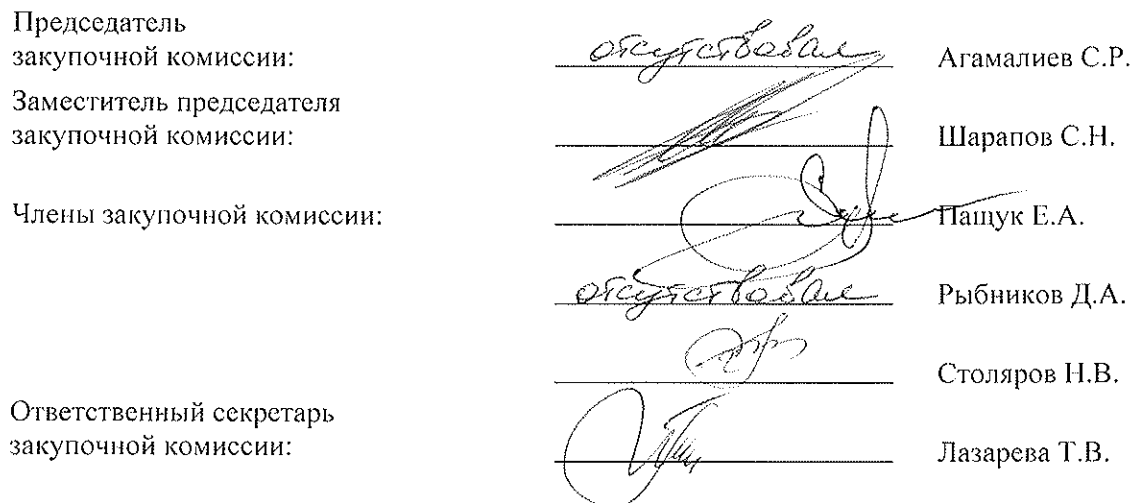 Председатель
закупочной комиссии:
отсутствовал
Агамалиев С.Р.
Заместитель председателя
закупочной комиссии:
Шарапов С.Н.
Члены закупочной комиссии:
Пащук Е.А.
отсутствовал
Рыбников Д.А.
Столяров Н.В.
Ответственный секретарь
закупочной комиссии:
Лазарева Т.В.